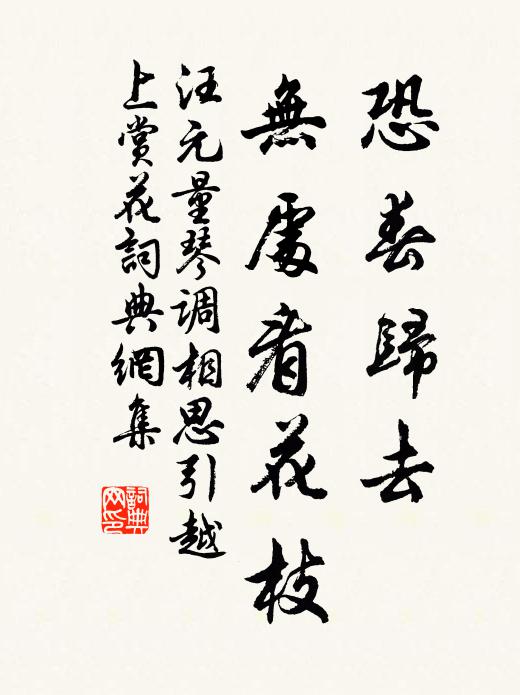 恐春歸去
無處看花枝
汪元量琴調相思引越
上賞花詞典網集
詞典网印